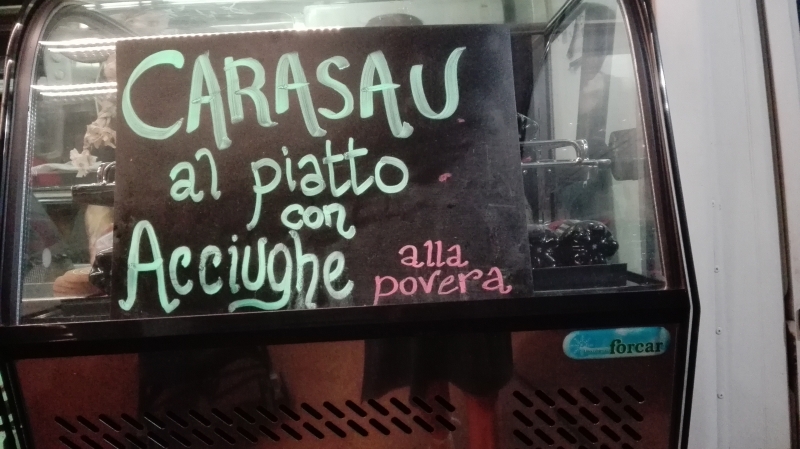 CARASAU
al piatto
con
Acciughe
alla
povera
forcar